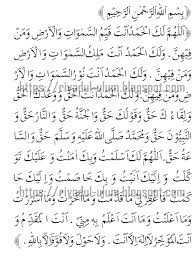 ﴿بِسْمِ اللهِ الرَّحْمٰنِ الرَّحِيْمِ﴾
﴿اَللّٰهُمَّ لَكَ الْحَمْدُ اَنْتَ قَيِّمُ السَّمٰوَاتِ وَالْاَرْضِ وَمَنْ
فِيْهِنَّ. وَلَكَ الْحَمْدُ اَنْتَ مَلِكُ السَّمٰوَاتِ وَالْاَرْضِ
وَمَنْ فِيْهِنَّ. وَلَكَ الْحَمْدُ اَنْتَ نُوْرُ السَّمٰوَاتِ وَالْاَرْضِ
وَمَنْ فِيْهِنَّ. وَلَكَ الْحَمْدُ اَنْتَ الْحَقُّ وَوَعْدُكَ الْحَقُّ
وَلِقَاءُكَ حَقٌّ وَقَوْلُكَ حَقٌّ وَالْجَنَّةُ حَقٌّ وَالنَّارُ حَقٌّ وَ
النَّبِيُّوْنَ حَقٌّ وَمُحَمَّدٌ صَلَّى اللهُ عَلَيْهِ وَسَلَّمَ حَقٌّ وَالسَّاعَةُ
حَقٌّ. اَللّٰهُمَّ لَكَ اَسْلَمْتُ وَبِكَ اٰمَنْتُ وَعَلَيْكَ تَوَ
كَّلْتُ وَاِلَيْكَ اَنَبْتُ وَبِكَ خَاصَمْتُ وَاِلَيْكَ حَا
كَمْتُ فَاغْفِرْلِيْ مَا قَدَّمْتُ وَمَا اَخَّرْتُ وَمَا اَسْرَرْتُ
وَمَا اَعْلَنْتُ وَمَا اَنْتَ اَعْلَمُ بِهِ مِنِّيْ. اَنْتَ الْمُقَدِّمُ وَ
اَنْتَ الْمُؤَخِّرُ لَا اِلٰهَ اِلَّا اَنْتَ. وَلَا حَوْلَ وَلَا قُوَّةَ اِلَّا بِاللهِ﴾